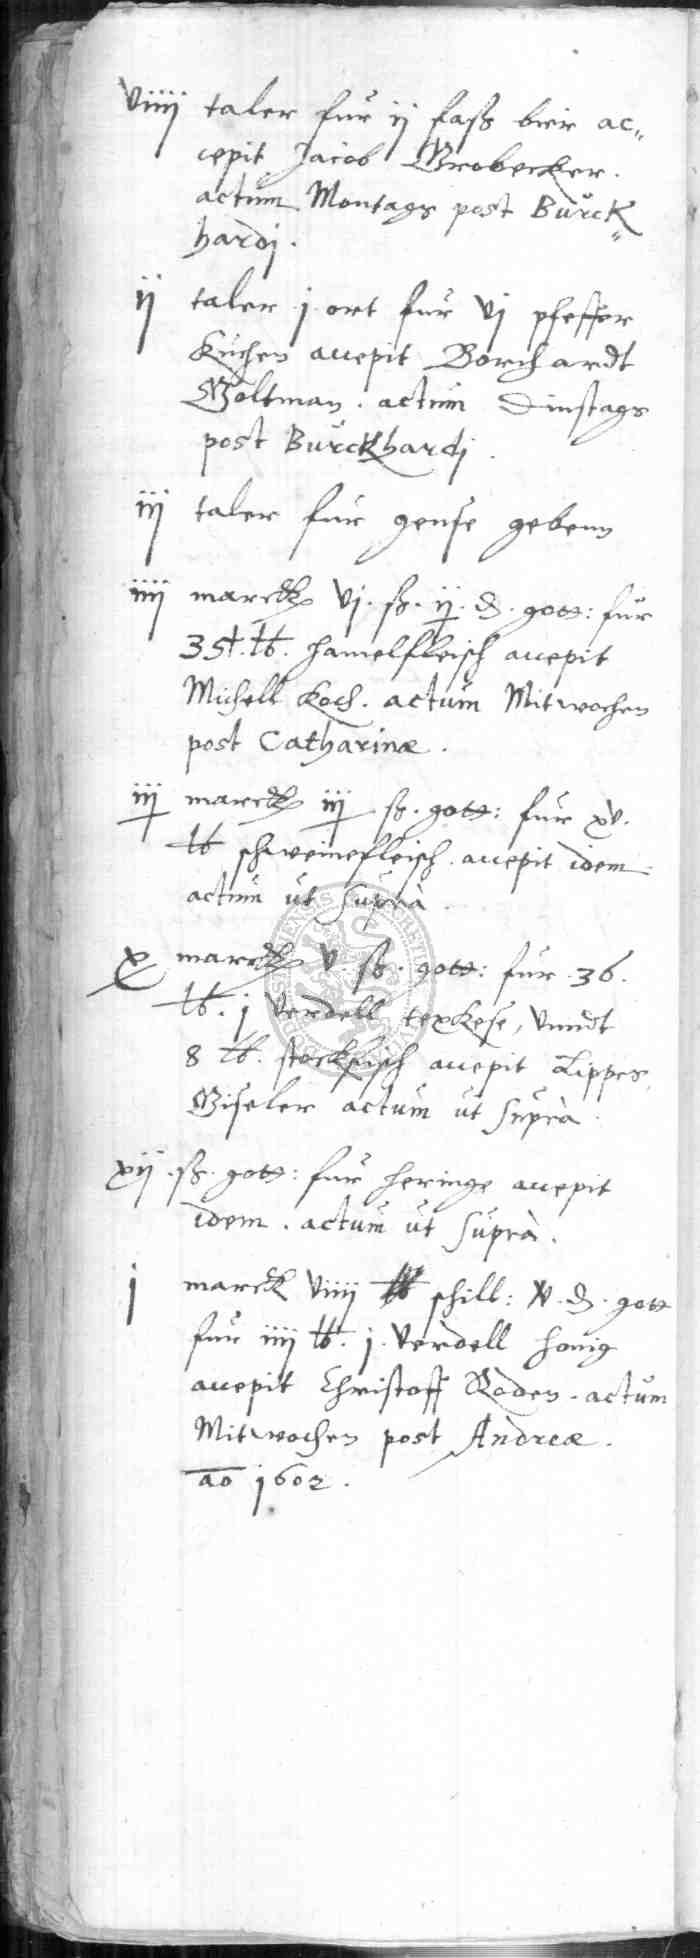 viiij taler fur ij faß bier ac„
cepit Jacob Grobecker.
actum Montags post Burck„
hardj.
ij taler j ort fur vj pfeffer
kuchen accepit Borchardt
Woltman. actum Dinstags
post Burckhardj.
iij taler fur gense gebenn
iiij marck vj. ß. ij. d. gott: fur
35 lb. hamelfleisch accepit
Michell Koch. actum Mitwochen
post Catharinæ.
iij marck iij ß. gott: fur xv.
lb schweinefleisch. accepit idem
actum ut suprà.
x marck v. ß. gott: fur 36.
lb. j verdell texkese, vnndt
8 lb. stockfisch accepit Lippes
Giseler actum ut suprà.
xij. ß. gott: fur heringe accepit
idem. actum ut suprà.
j marck viiij schill: v. d. gott
fur iiij lb. j. verdell honig
accepit Christoff Roden. actum
Mitwochen post Andreæ.
ao 1602.